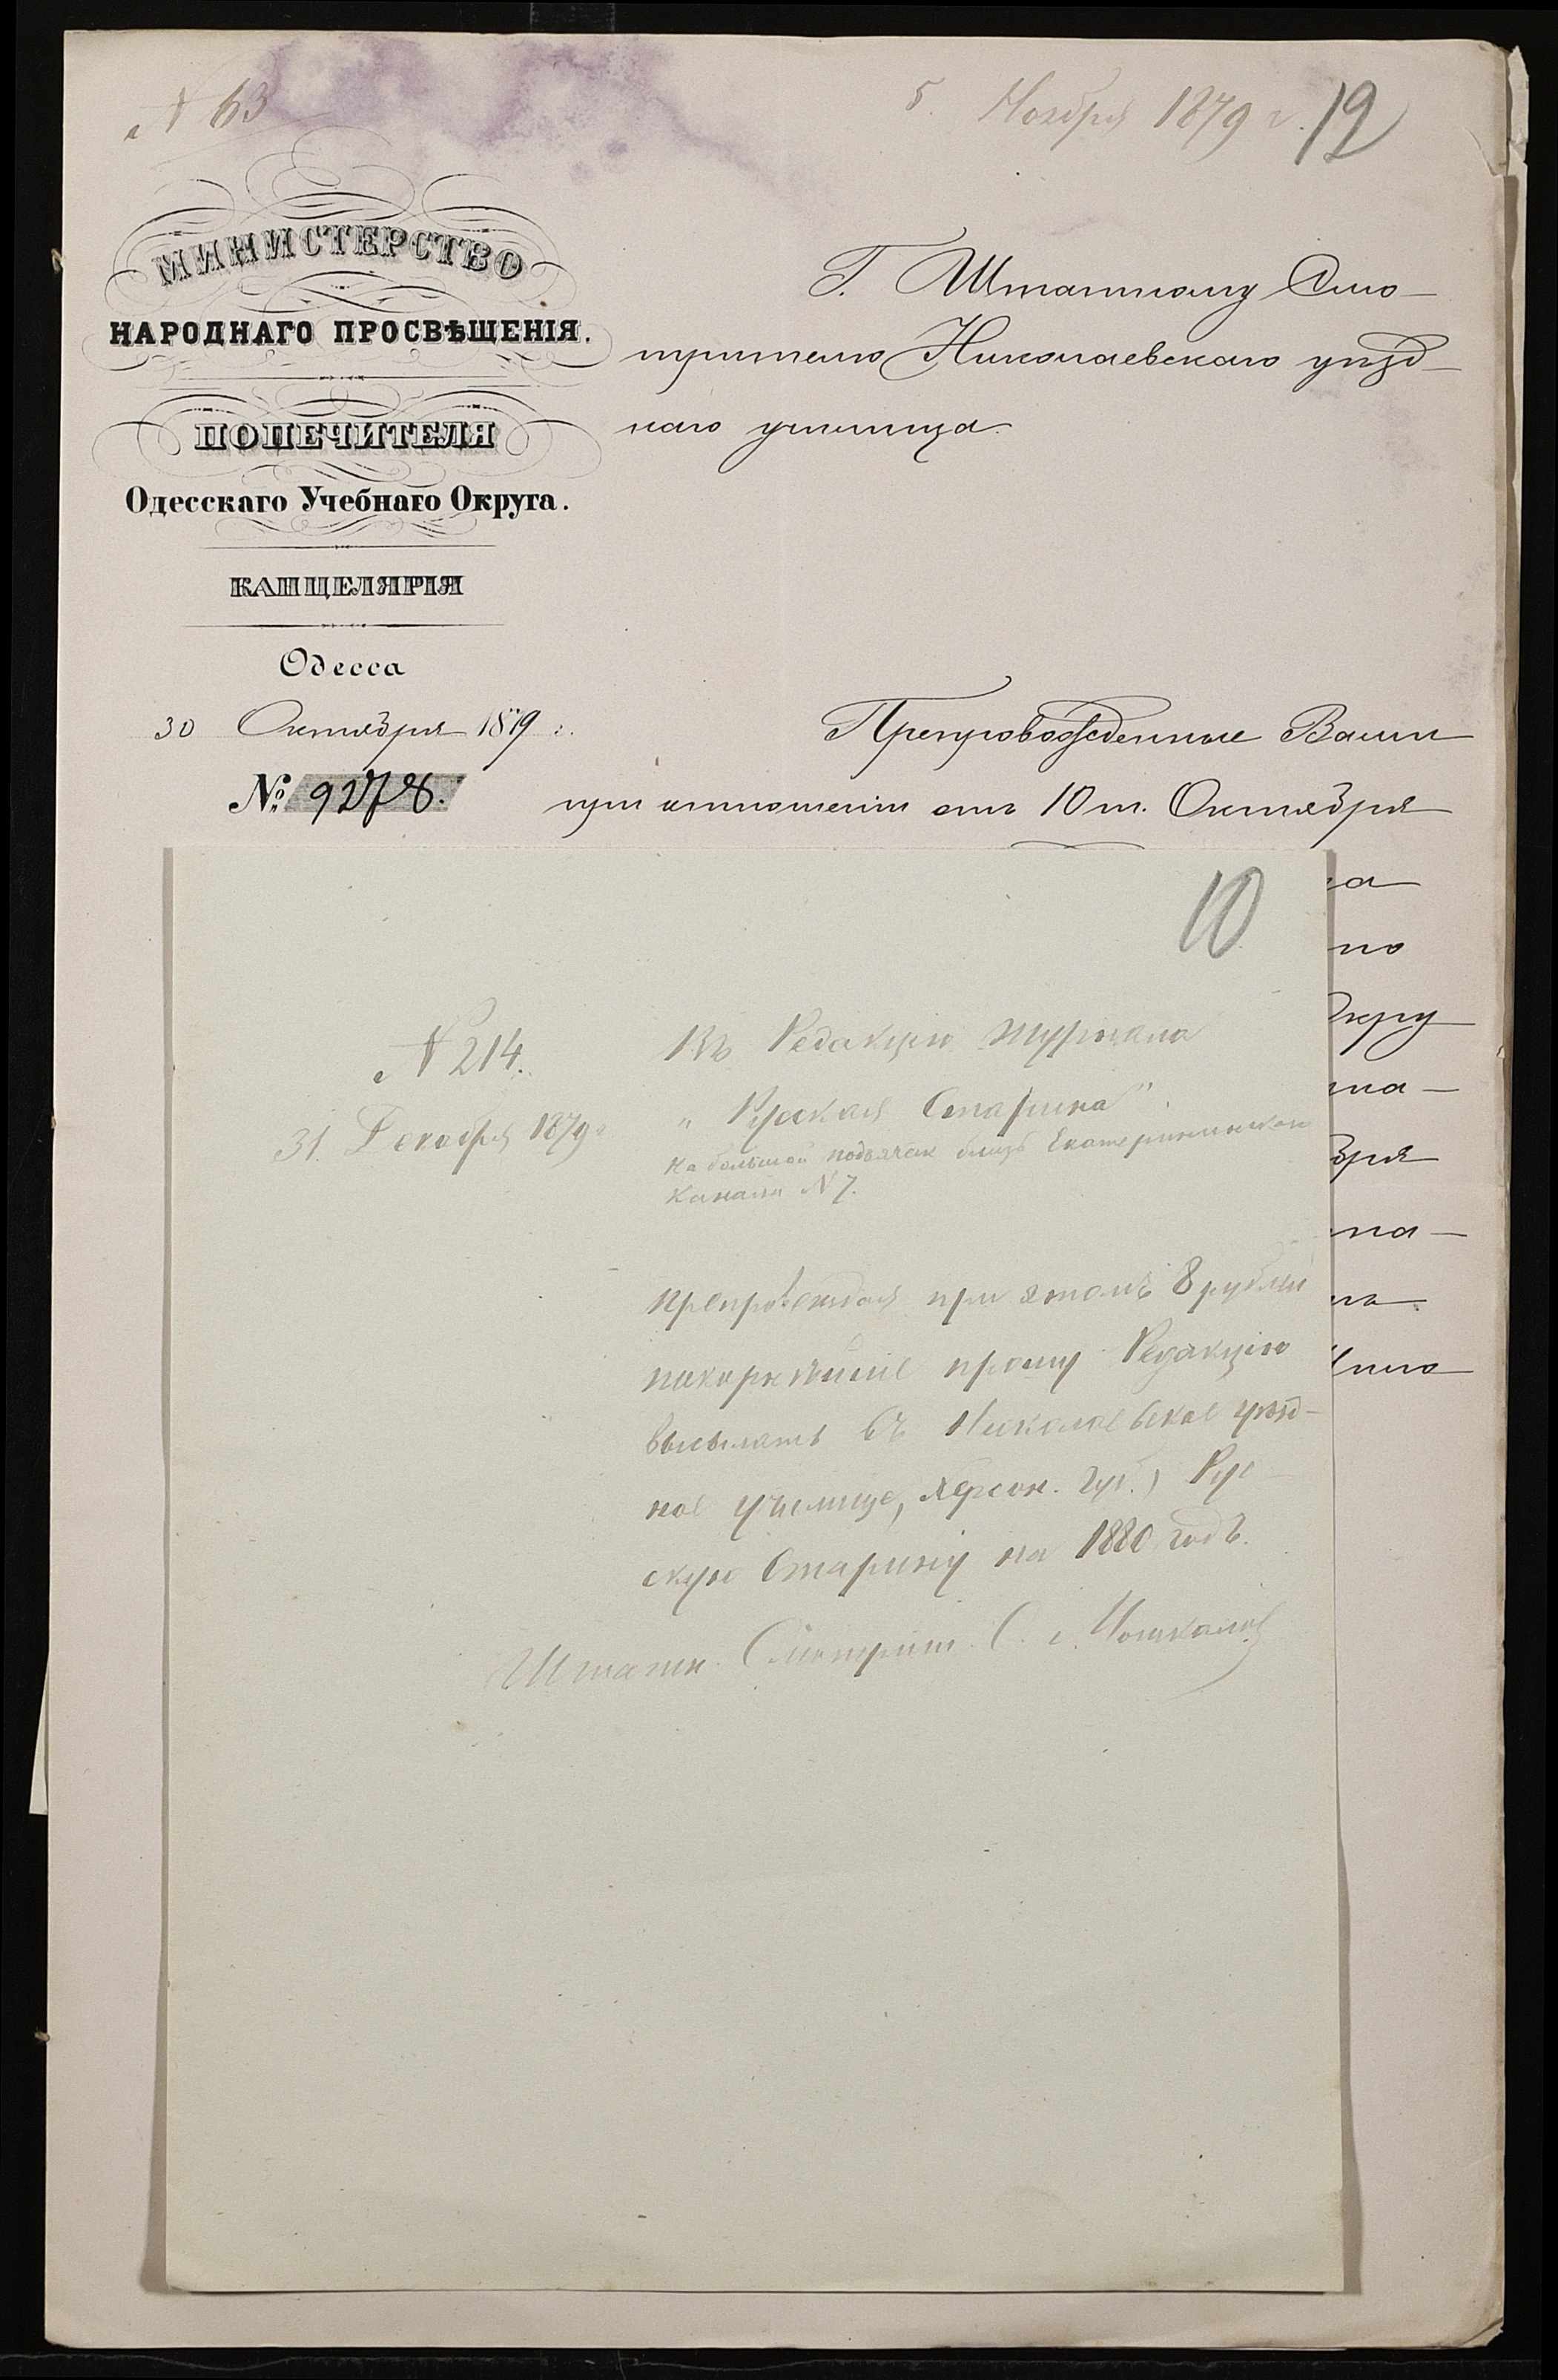 № 63
5 Ноября 1879 г. 12
МИНИСТЕРСТВО
НАРОДНАГО ПРОСВѢЩЕНІЯ.
ПОПЕЧИТЕЛЯ
Одесскаго Учебнаго Округа.
КАНЦЕЛЯРІЯ
Одесса
30 Октября 1879 г.
№ 9278.
Г. Штатному Смо-
трителю Николаевскаго уѣзд-
наго училища.
Препровожденные Вами
при отношеніи отъ 10 т. Октября
на
по
Окру
та-
бря
на-
Что
10
№ 214.
31. Декабря 1879 г.
Въ Редакцію журнала
"Русская Старина".
На большой подъяческ близъ Екатерининскаго
Канала № 7.
Препровождая при этомъ 8 рублей
покорнѣйше прошу Редакцію
высылать въ Николаевское уѣзд-
ное училище, Херсон. губ.) Рус-
скую Старину на 1880 годъ.
Штатн. Смотрит. С.